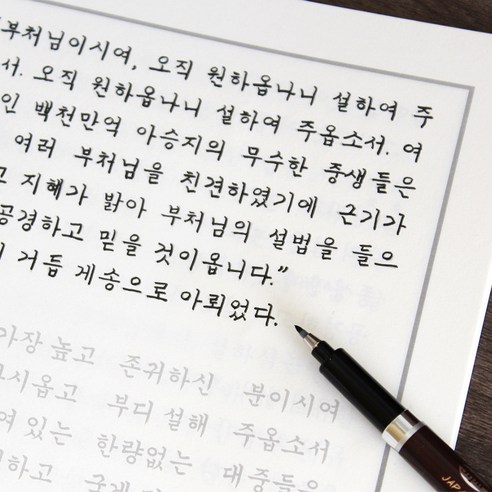 부처님이시여, 오직 원하옵나니 설하여 주
서. 오직 원하옵나니 설하여 주옵소서. 여
인 백천만억 아승지의 무수한 중생들은
여러 부처님을 친견하였기에 근기가
고 지혜가 밝아 부처님의 설법을 들으
공경하고 믿을 것이옵니다."
거듭 게송으로 아뢰었다.
가장 높고 존귀하신 분이시여
시옵고 부디 설해 주옵소서
여 있는 한량없는 대중들은
하고
JAP